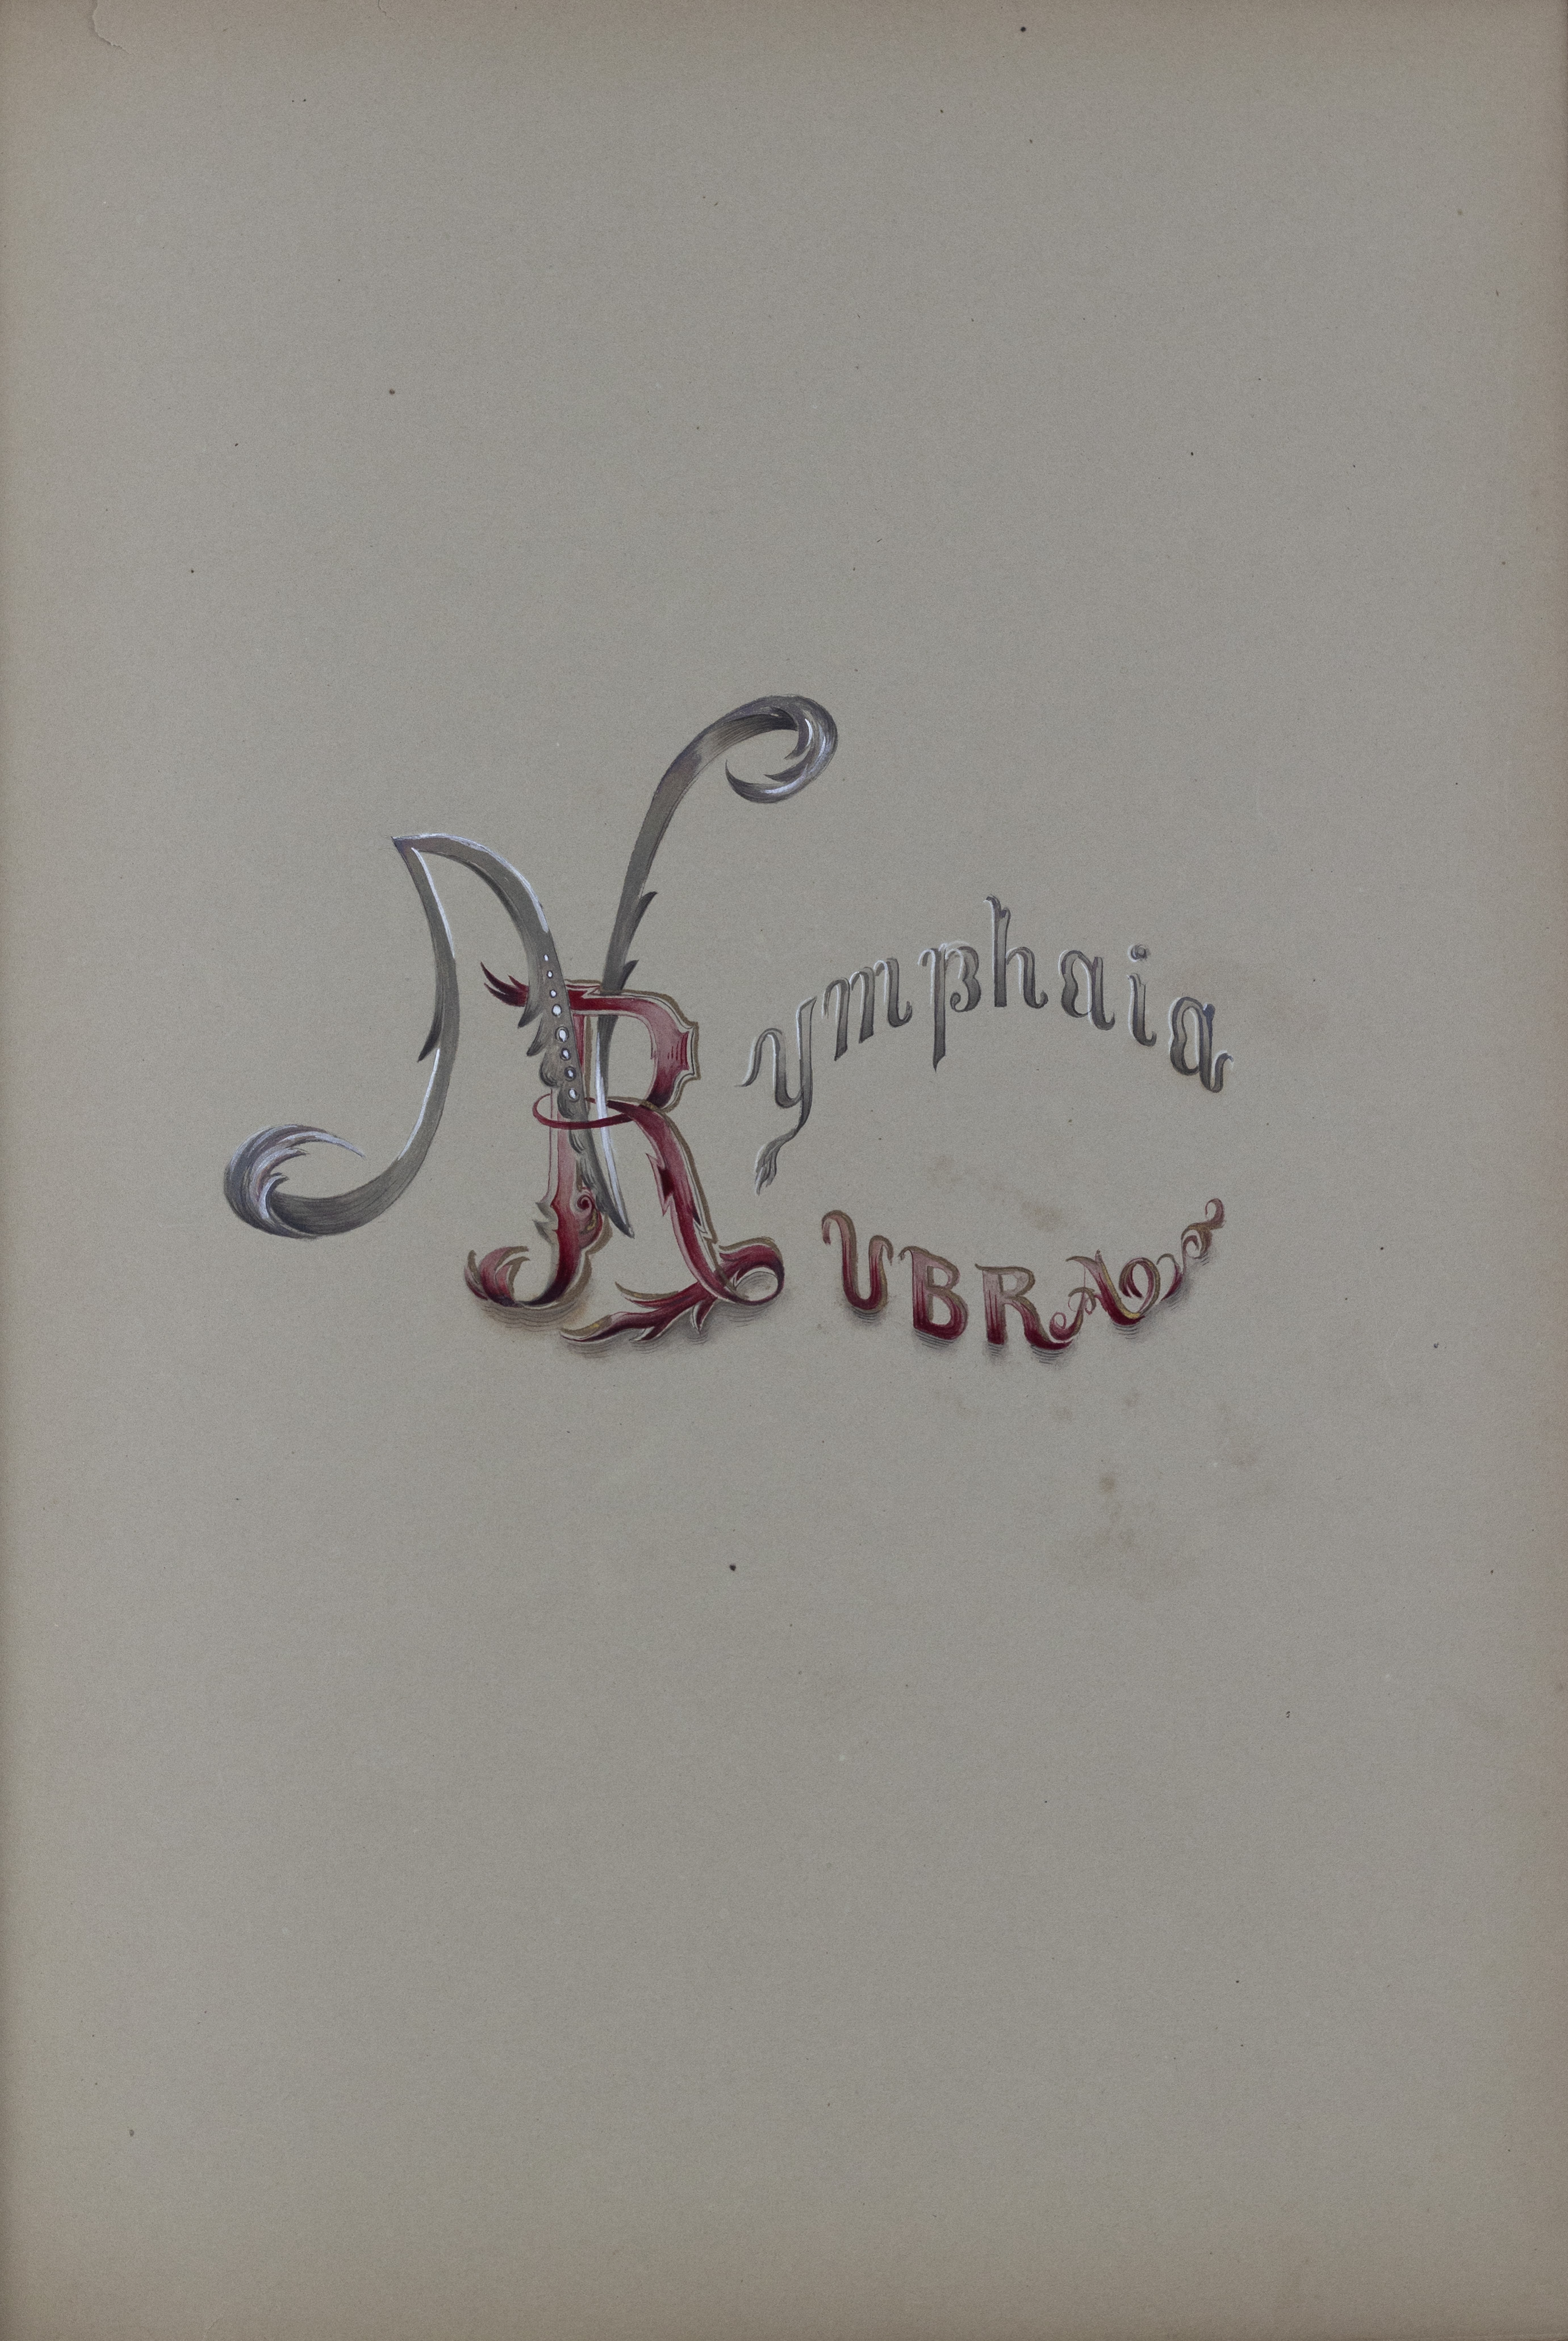 Nymphaia
RUBRA